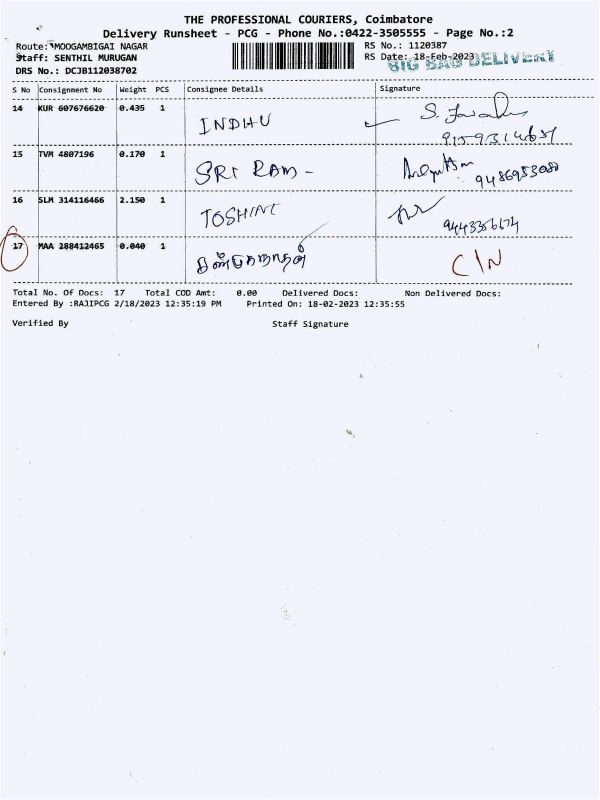 THE PROFESSIONAL COURIERS, Coimbatore
Delivery Runsheet - PCG - Phone No.:0422-3505555 - Page No.:2
Route: MOOGAMBIGAI NAGAR
RS No.: 1120387
Staff: SENTHIL MURUGAN
RS Date: 18-Feb-2023
BIG BAG DELIVERY
DRS No.: DCJB112038702
S No Consignment No Weight PCS Consignee Details Signature
14 KUR 607676620 0.435 1 INDHU
15 TVM 4807196 0.170 1 SRI RAM -
16 SLM 314116466 2.150 1 TOSHINE
17 MAA 288412465 0.040 1 C/N
Total No. Of Docs: 17 Total COD Amt: 0.00 Delivered Docs: Non Delivered Docs:
Entered By :RAJIPCG 2/18/2023 12:35:19 PM Printed On: 18-02-2023 12:35:55
Verified By Staff Signature